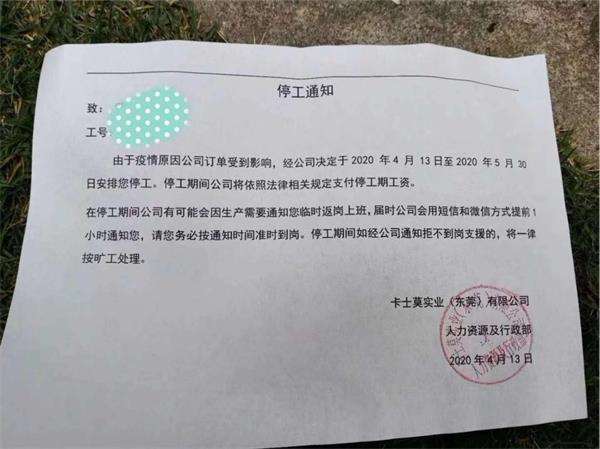 停工通知
致：
工号
由于疫情原因公司订单受到影响，经公司决定于 2020 年 4 月 13日至 2020 年 5 月 30
日安排您停工。停工期间公司将依照法律相关规定支付停工期工资。
在停工期间公司有可能会因生产需要通知您临时返岗上班，届时公司会用短信和微信方式提前1
小时通知您，请您务必按通知时间准时到岗。停工期间如经公司通知拒不到岗支援的，将一律
按旷工处理。
卡士莫实业（东莞）有限公司
人力资源及行政部
2020 年 4 月 13 日